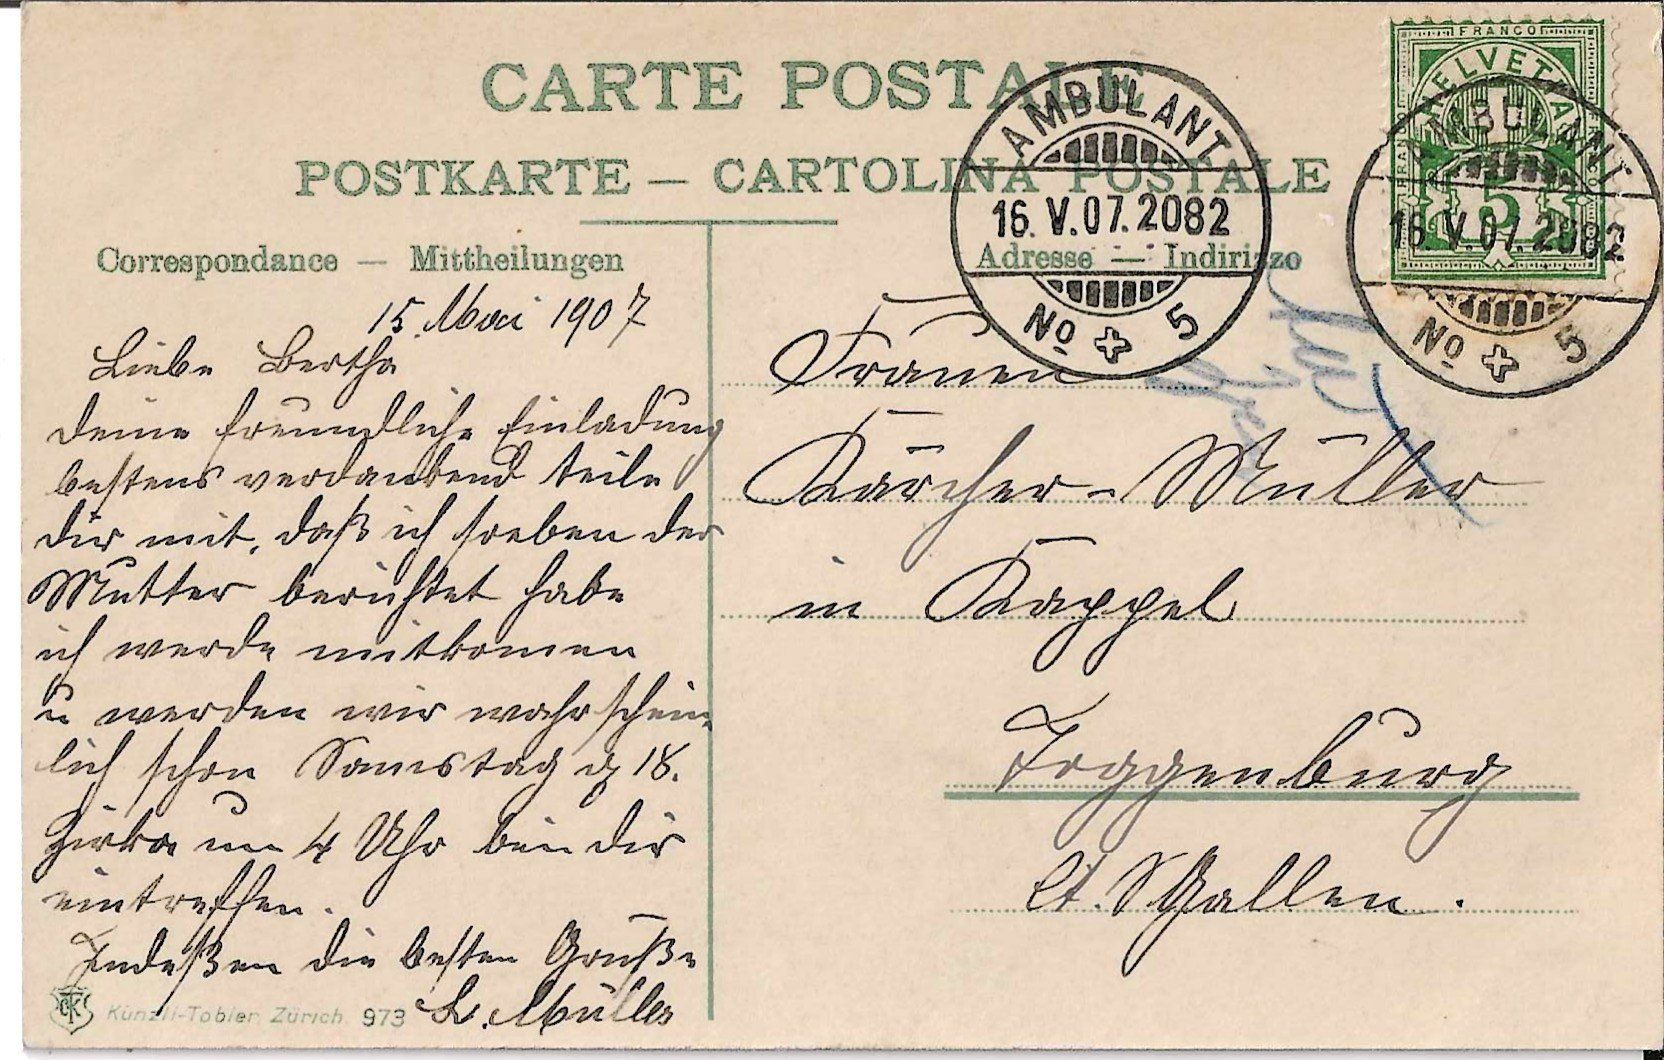 CARTE POSTALE
POSTKARTE — CARTOLINA POSTALE
Correspondance — Mittheilungen
Adresse — Indirizzo
FRANCO
HELVETIA
FRANCO
FRANCO
5
AMBULANT
16.V.07.2082
No 5
AMBULANT
16.V.07.2082
No 5
15. Mai 1907
Liebe Bertha
deine freundliche Einladung
bestens verdankend teile
dir mit, daß ich soeben der
Mutter berichtet habe
ich werde mitkomen
u werden wir wahrschein-
lich schon Samstag d 18.
Zirka um 4 Uhr bei dir
eintreffen.
Indeßen die besten Grüße
L. Müller
Frauen
Kärcher-Müller
in Kappel
Toggenburg
Ct. St Gallen.
CTK
Künzli-Tobler, Zürich 973